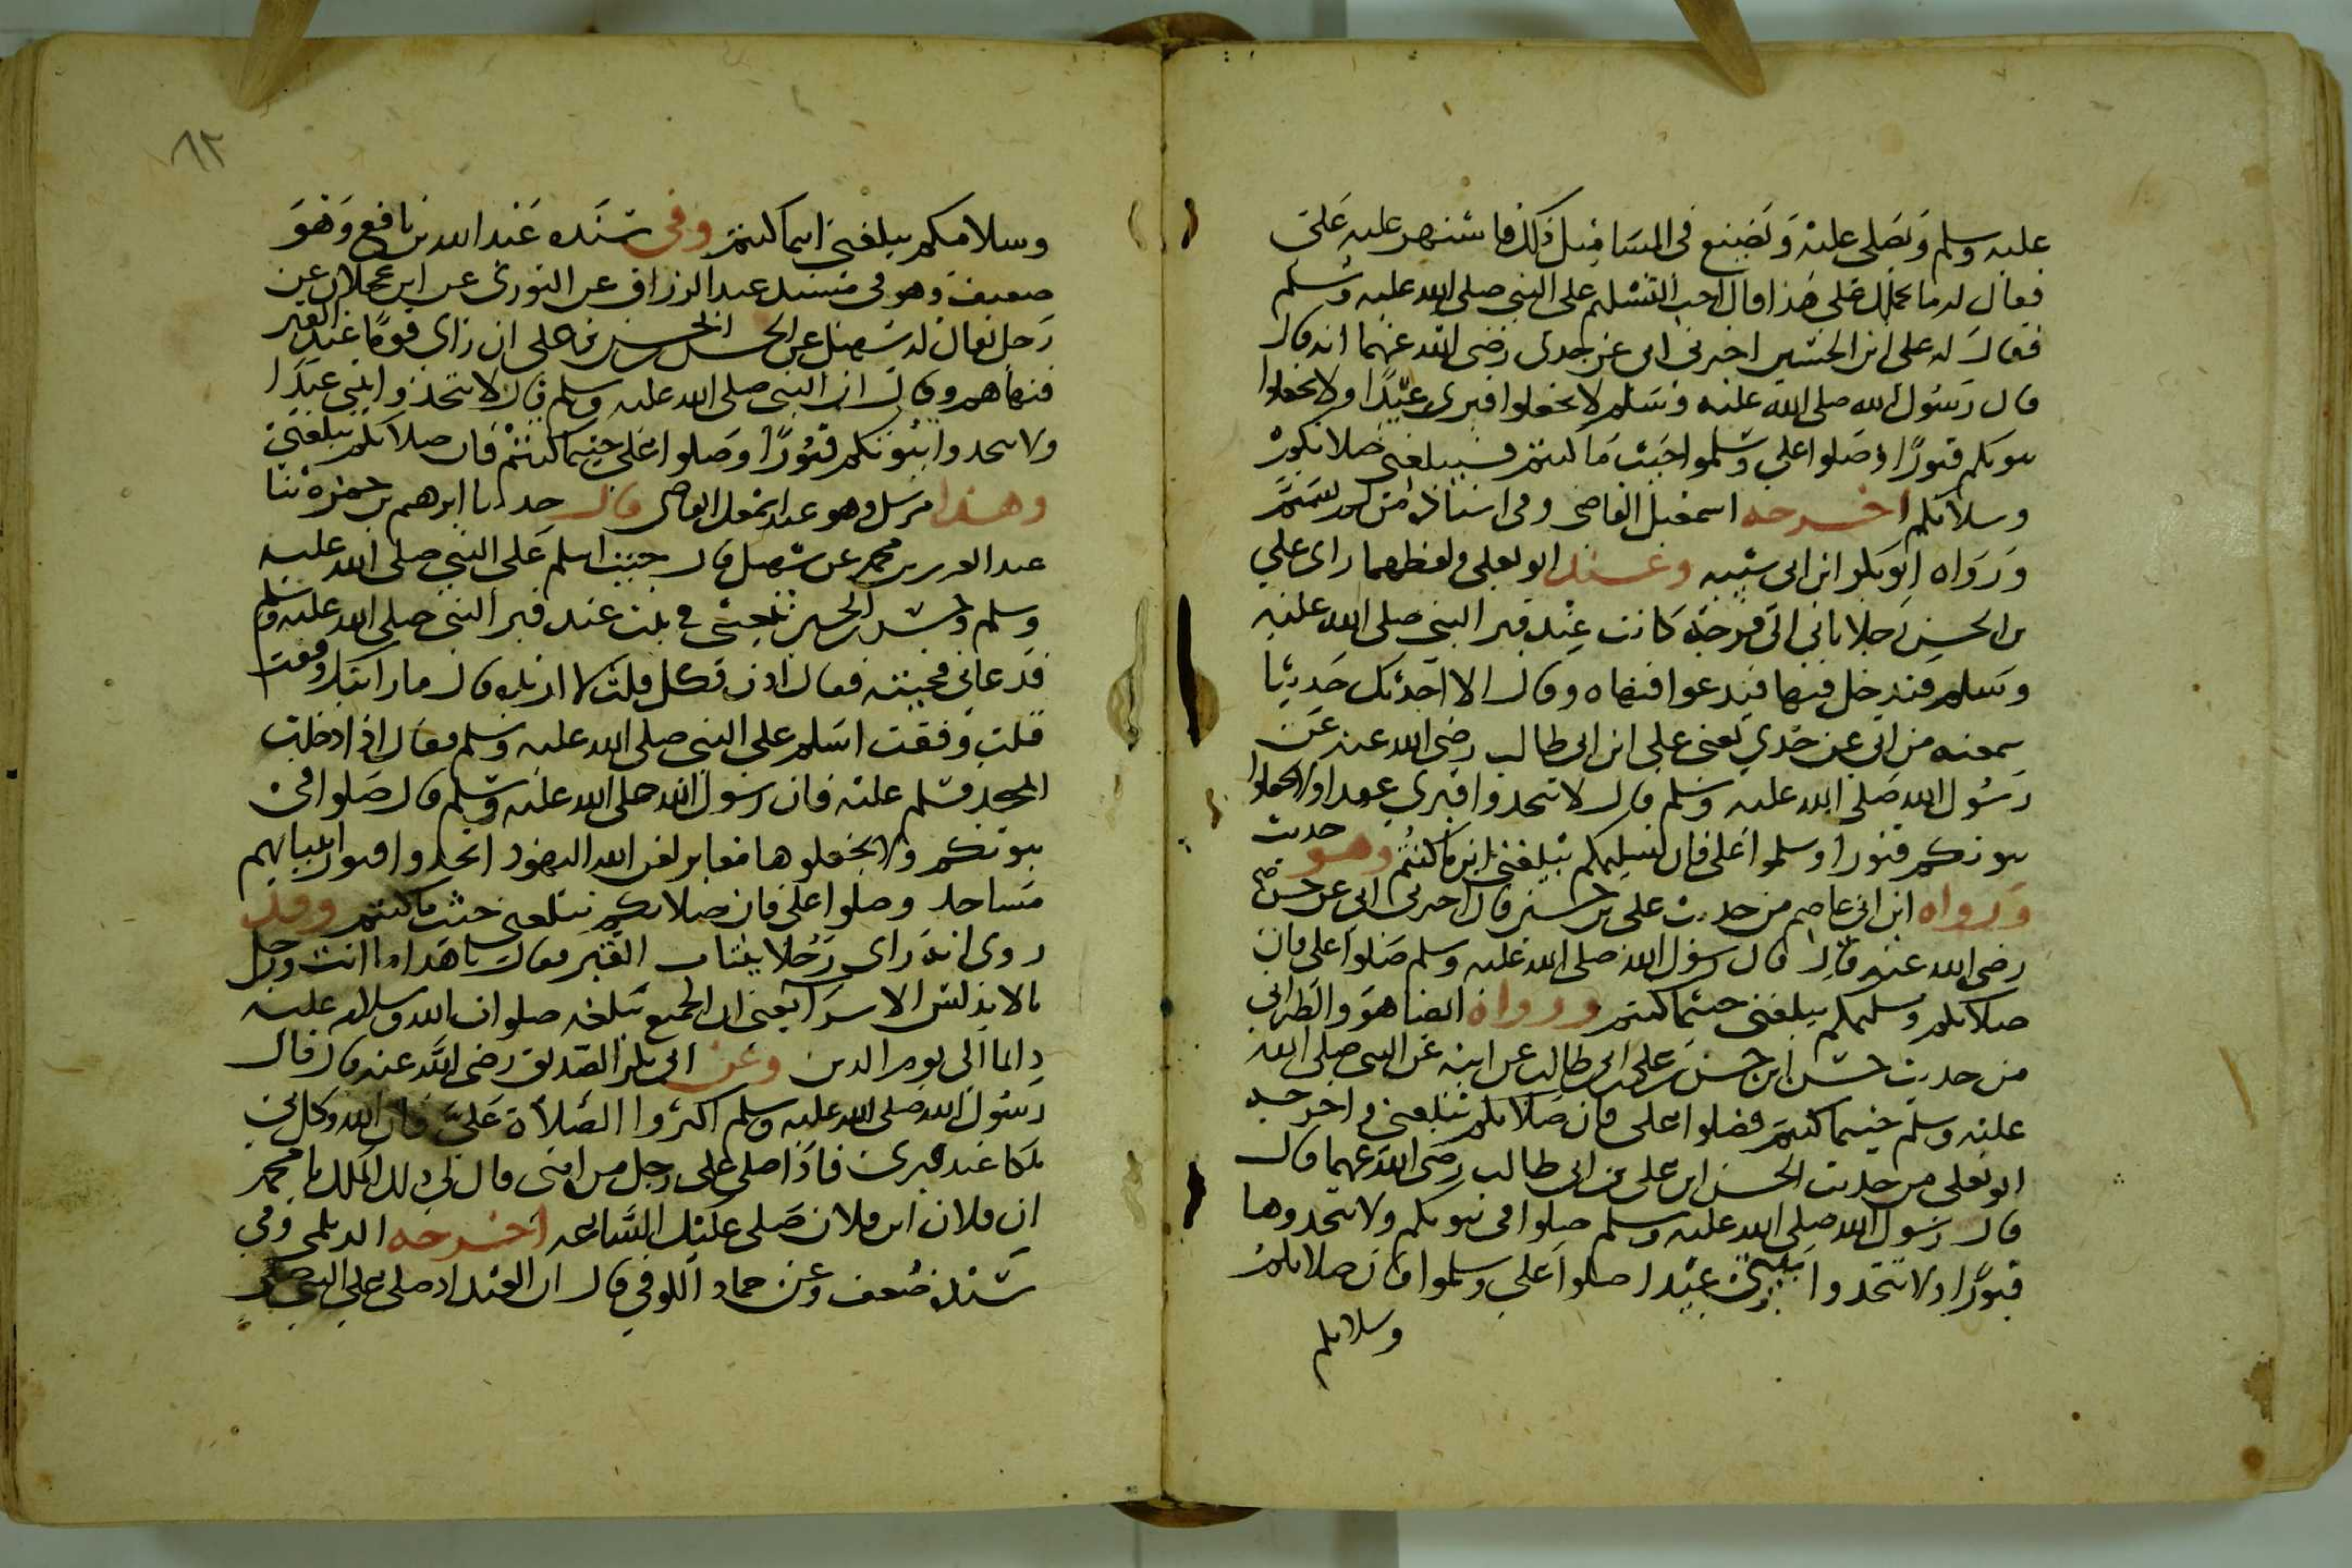 عليه وسلم وتصلي عليه ويصنع في المسا مثل ذلك فاشتهر عليه علي
فقال له ما يحملك علي هذا قال احب التسليم علي النبي صلى الله عليه وسلم
فقال له علي ابن الحسين اخبرني ابي عن جدي رضي الله عنهما انه قال
قال رسول الله صلى الله عليه وسلم لا تجعلوا قبري عيدا ولا تجعلوا
بيوتكم قبورا وصلوا علي وسلموا حيث ما كنتم فسيبلغني صلاتكم
وسلامكم اخرجه اسمعيل القاضي وفي اسناده من لم يسم
ورواه ابو بكر ابن ابي شيبه وعنه ابو يعلى ولفظهما راى علي
بن الحسين رجلا ياتي الى فرجة كانت عند قبر النبي صلى الله عليه
وسلم فيدخل فيها فيدعوا فنهاه وقال الا احدثك حديثا
سمعته من ابي عن جدي يعني علي ابن ابي طالب رضي الله عنه عن
رسول الله صلى الله عليه وسلم قال لا تتخدوا قبري عيدا ولا تجعلوا
بيوتكم قبورا وسلموا علي فان تسليمكم يبلغني اين ما كنتم وهو حديث
ورواه ابن ابي عاصم من حديث علي بن حسين قال اخبرني ابي عن جدي
رضي الله عنه قال قال رسول الله صلى الله عليه وسلم صلوا علي فان
صلاتكم وتسليمكم يبلغني حيثما كنتم ورواه ايضا هو والطبراني
من حديث حسن ابن حسن بن علي بن ابي طالب عن ابيه عن النبي صلى الله
عليه وسلم حيثما كنتم فصلوا علي فان صلاتكم تبلغني واخرجه
ابو يعلى من حديث الحسن ابن علي بن ابي طالب رضي الله عنهما قال
قال رسول الله صلى الله عليه وسلم صلوا في بيوتكم ولا تتخدوها
قبورا ولا تتخدوا بيتي عيدا صلوا علي وسلموا فان صلاتكم
وسلامكم
٦٢
وسلامكم يبلغني اينما كنتم وفي سنده عبد الله بن نافع وهو
ضعيف وهو في مسند عبد الرزاق عن الثوري عن ابن عجلان عن
رجل يقال له سهيل عن الحسن ابن الحسن بن علي انه راى قوما عند القبر
فنهاهم وقال ان النبي صلى الله عليه وسلم قال لا تتخذوا بيتي عيدا
ولا تتخدوا بيوتكم قبورا وصلوا علي حيثما كنتم فان صلاتكم تبلغني
وهذا مرسل وهو عند اسمعيل القاضي قال حدثنا ابرهيم بن حمزة ثنا
عبد العزيز بن محمد عن سهيل قال جيت اسلم على النبي صلى الله عليه
وسلم وحسن بن الحسين يتعشى في بيت عند قبر النبي صلى الله عليه وسلم
فدعاني فجيته فقال ادن فكل قلت لا اريده قال ما رايتك وقفت
قلت وقفت اسلم على النبي صلى الله عليه وسلم فقال اذا دخلت
المسجد فسلم عليه فان رسول الله صلى الله عليه وسلم قال صلوا في
بيوتكم ولا تجعلوها مقابر لعن الله اليهود اتخدوا قبور انبيائهم
مساجد وصلوا علي فان صلاتكم ستبلغني حيث ما كنتم وقد
روي انه راى رجلا ينتاب القبر فقال يا هذا ما انت ورجل
بالاندلس الا سوا يعني ان الجميع تبلغه صلوات الله وسلامه عليه
دايما الى يوم الدين وعن ابي بكر الصديق رضي الله عنه قال قال
رسول الله صلى الله عليه وسلم اكثروا الصلاة علي فان الله وكل لي
ملكا عند قبري فاذا صلى علي رجل من امتي قال لي ذلك الملك يا محمد
ان فلان ابن فلان صلى عليك الساعه اخرجه الديلمي وفي
سنده ضعف وعن حماد الكوفي قال ان العبد اذ صلى علي النبي